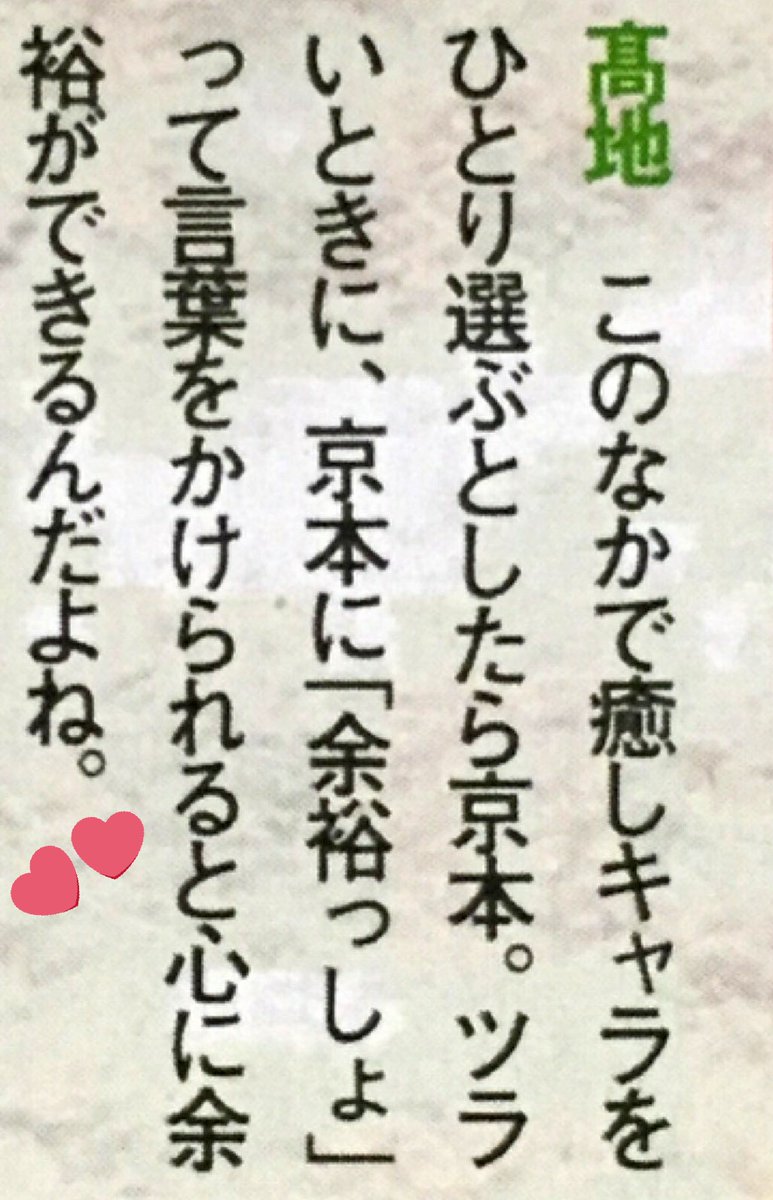 髙地　このなかで癒しキャラを
ひとり選ぶとしたら京本。ツラ
いときに、京本に「余裕っしょ」
って言葉をかけられると心に余
裕ができるんだよね。